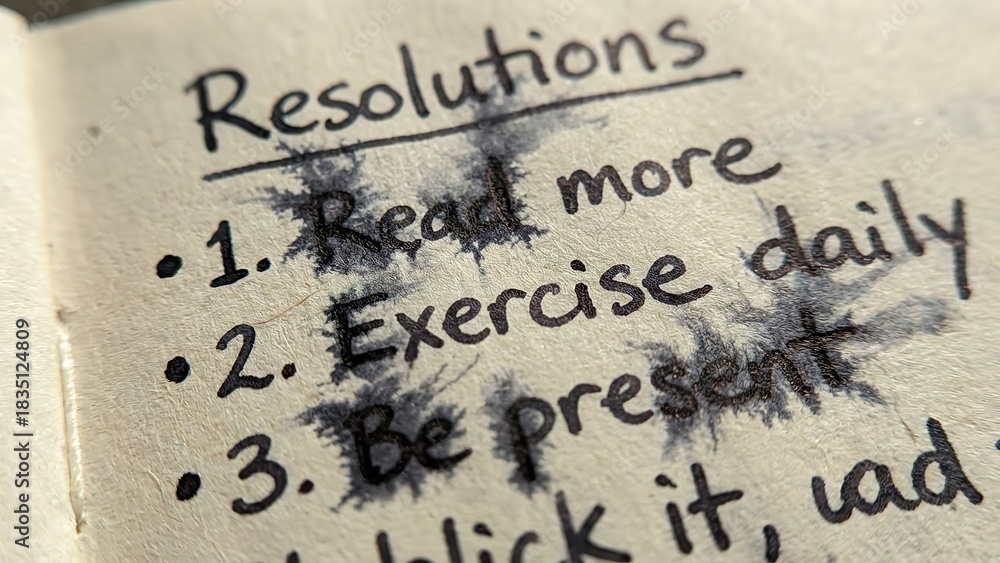 Resolutions
• 1. Read more
• 2. Exercise daily
• 3. Be present
blick it, uad
Adobe Stock | #1835124809